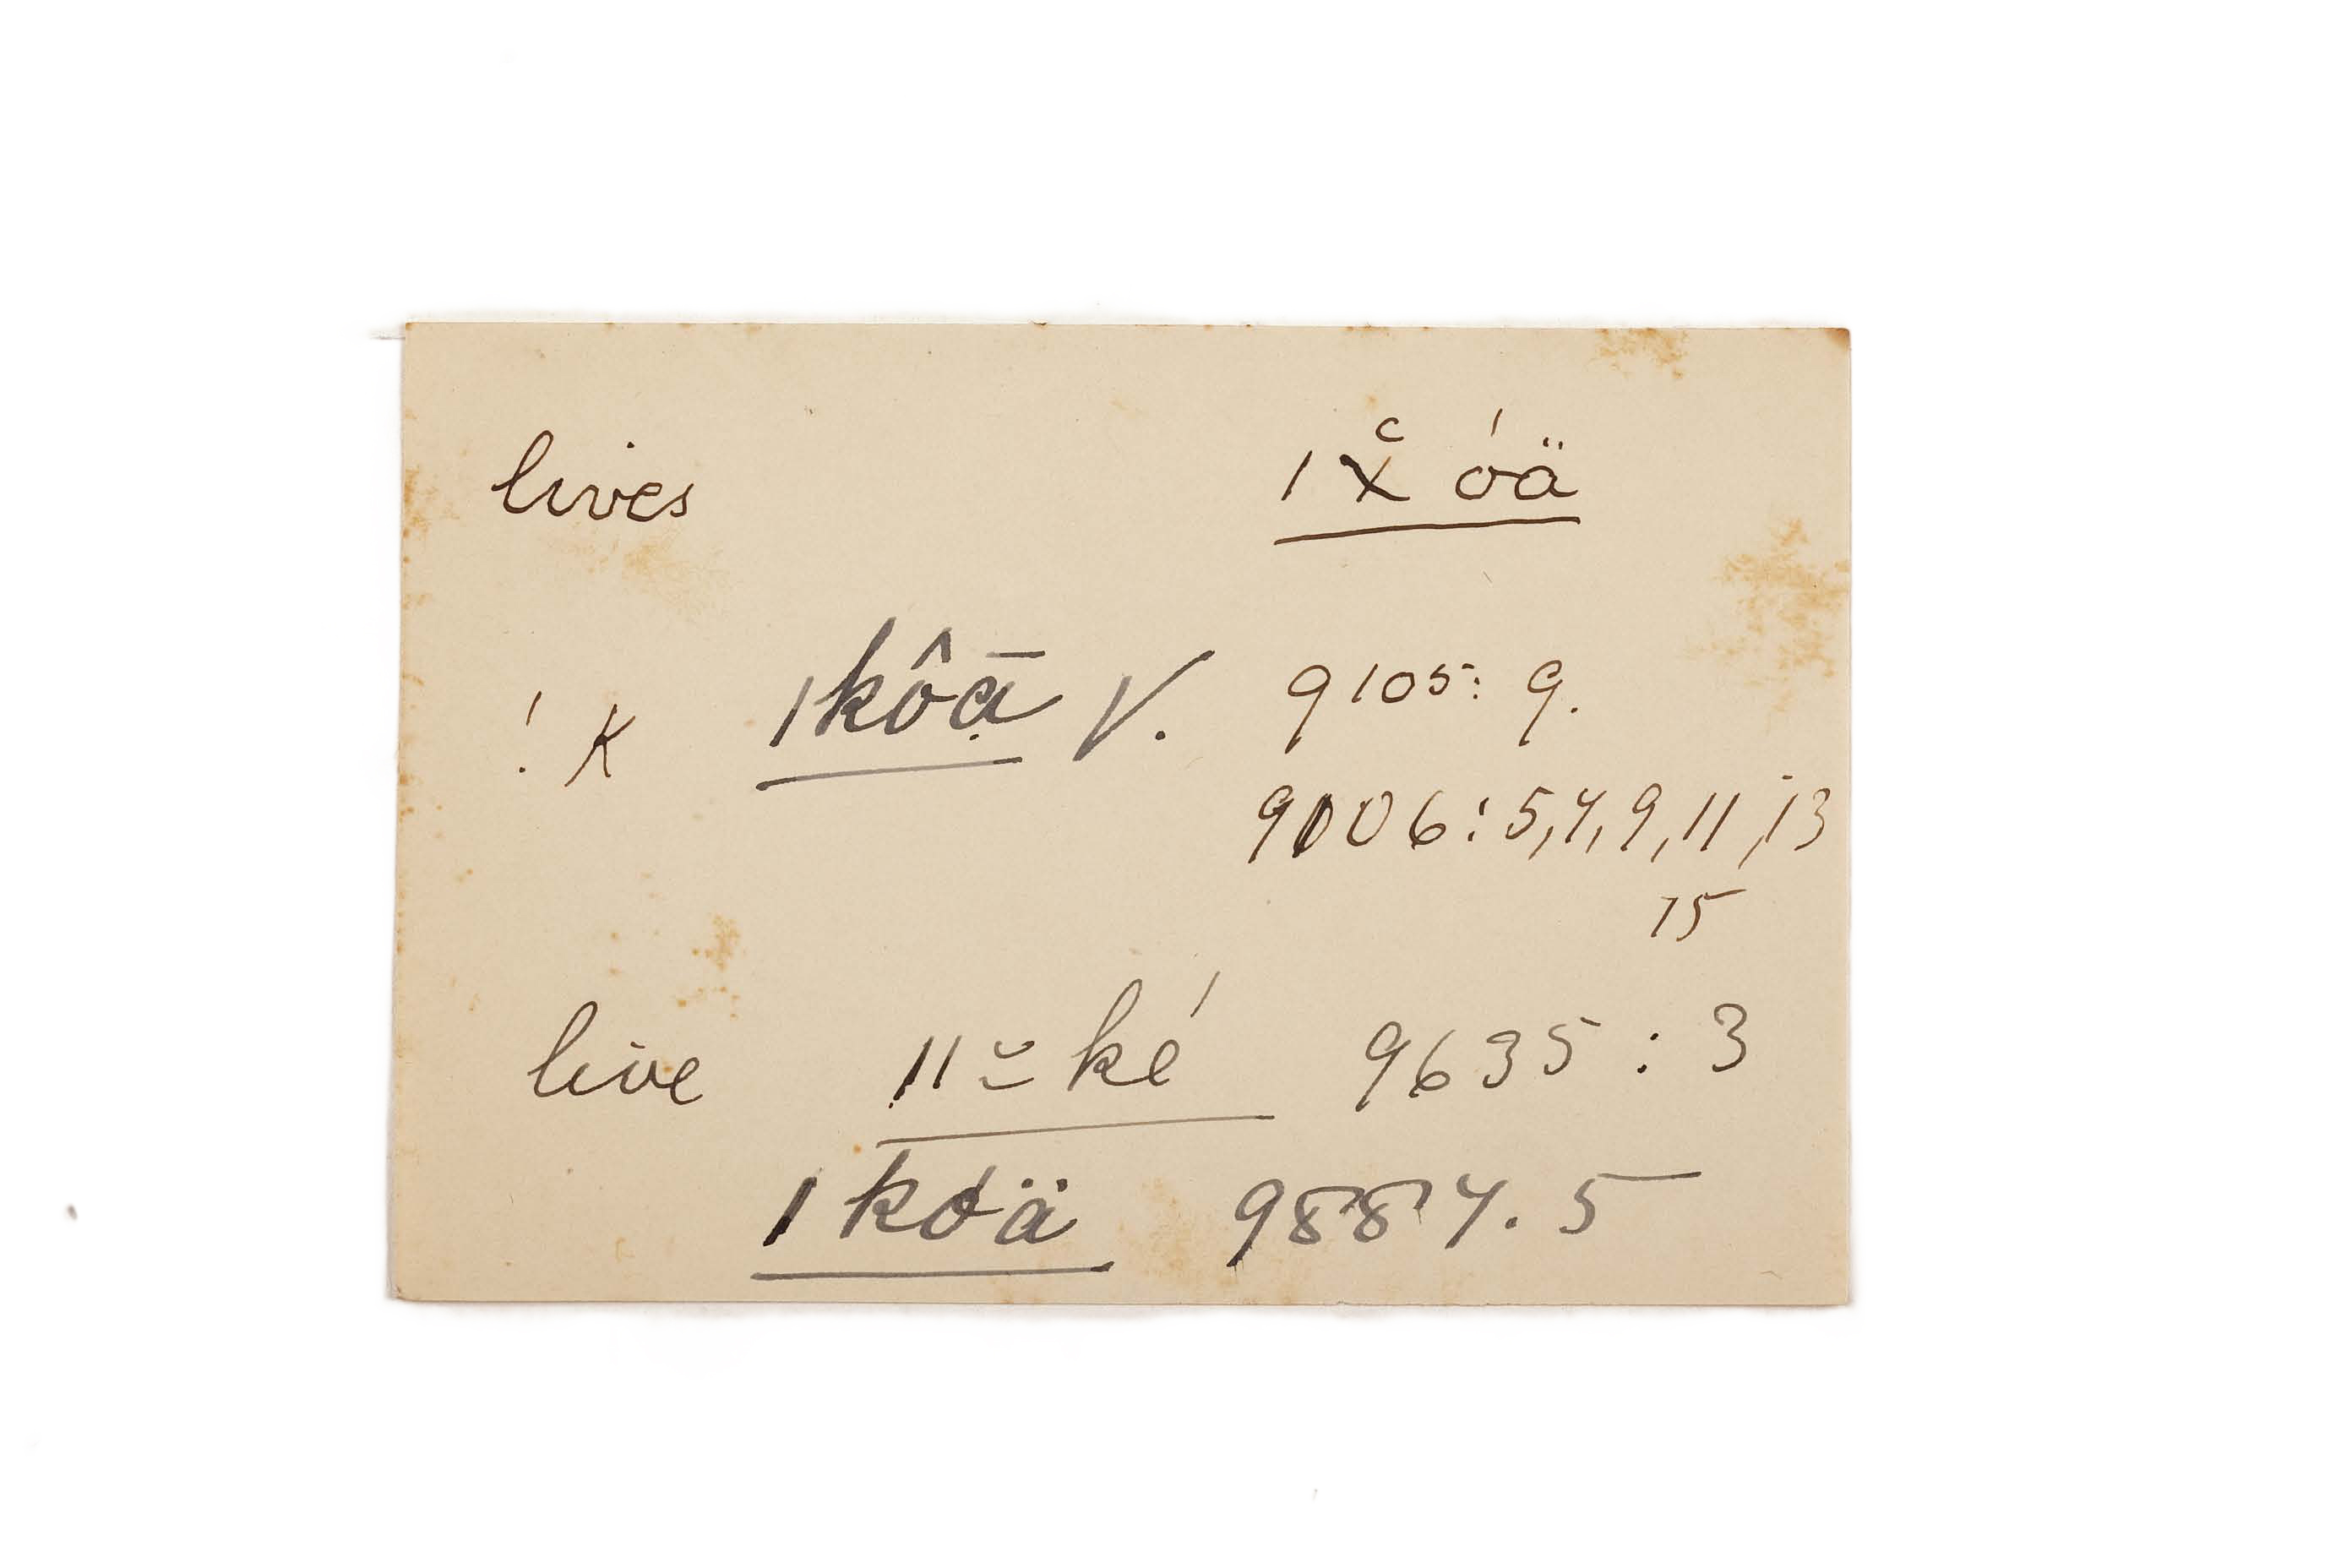 lives ǀχ̔ óä
! K ǀkôā̤ V. 9105: 9.
9006: 5,7,9,11,13
15
live ǁ ̆ ké 9635 : 3
ǀkóä 9887. 5